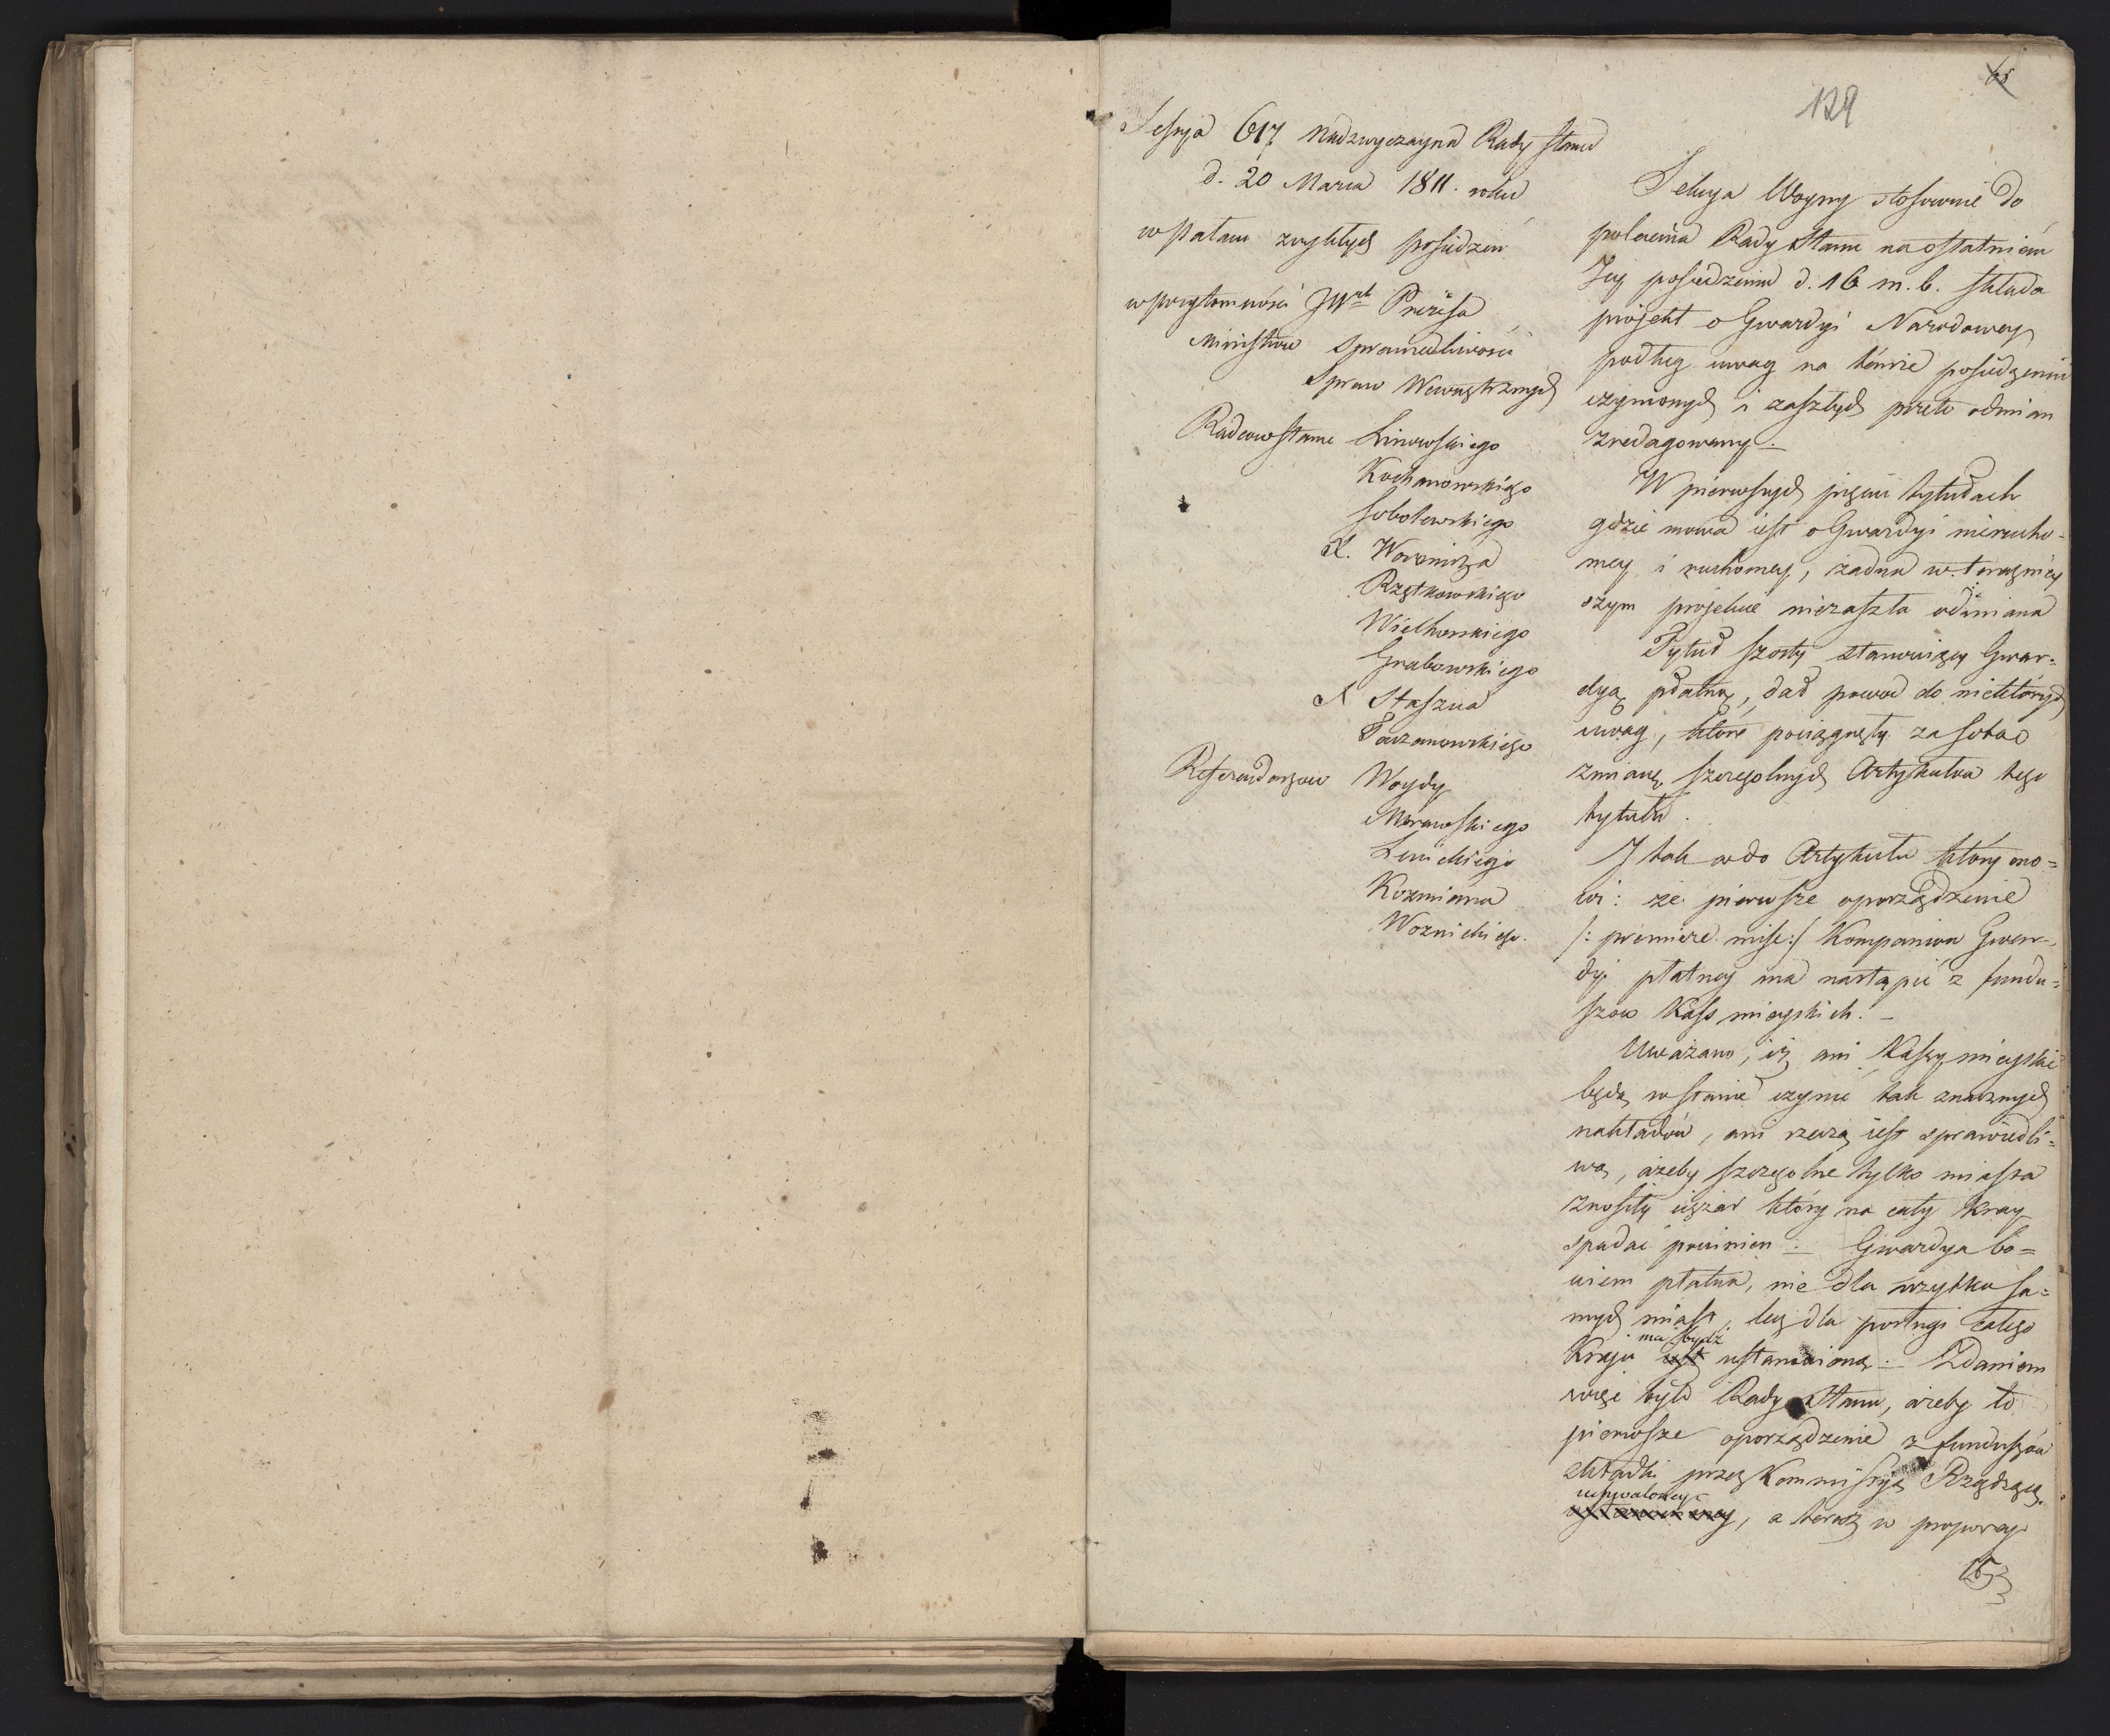 65
129
Sessya 617 Nadzwyczayna Rady Stanu
d. 20 Marca 1811. roku
w Pałacu zwykłych posiedzeń
w przytomności JW Prezesa
Ministrów Sprawiedliwości
Spraw Wewnętrznych
Radców Stanu Linowskiego
Kochanowskiego
Sobolewskiego
X. Woronicza
Rzętkowskiego
Wielhorskiego
Grabowskiego
X Staszica
Tarzanowskiego
Referendarzów Woydy
Morawskiego
Lenickiego
Kozmiana
Woznickiego.
Sekcya Woyny stosownie do
polecenia Rady Stanu na ostatniem
Jey posiedzeniu d. 16 m. b. składa
projekt o Gwardyi Narodowey
podług uwag na témże posiedzeniu
czynionych i zaszłych przeto odmian
zredagowany. —
W pierwszych pięciu tytułach
gdzie mowa iest o Gwardyi nierucho-
mey i ruchomey, żadna w teraźniey
szym projekcie niezaszła odmiana
Tytuł szosty stanowiący Gwar-
dyą płatną, dał powod do niektórych
uwag, które pociągnęły za sobą
zmianę szczegolnych Artykułów tego
tytułu.
I tak co do Artykułu który mo=
wi: że pierwsze oporządzenie
/: premiere mise :/ Kompaniow Gwar-
dyi płatney ma nastąpić z fundu=
szow Kass mieyskich. —
Uważano, iż ani Kassy mieyskie
będą w stanie czynić tak znacznych
nakładów, ani rzeczą iest sprawiedli=
wą, ażeby szczegolne tylko miasta
znosiły ciężar który na cały Kray
spadać powinien. — Gwardya bo=
wiem płatna, nie dla użytku sa=
mych miast, lecz dla posługi całego
ma bydź
Kraju iest ustanowioną. — Zdaniem
więc było Rady Stanu, ażeby to
pierwsze oporządzenie z funduszów
składki przez Kommissyą Rządzącą
uchwaloney
, a teraz w proporcyi